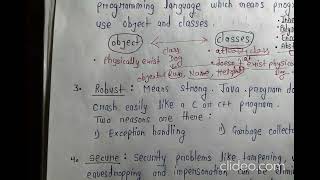 programming language which means progr
use object and classes.
object classes
class
Dog
• physically exist
• a class
• doesn't exist physica
Dog
object Run, Name, Height
3. Robust : Means strong. Java program do
Crash easily like a C or C++ program.
Two reasons are there :
i) Exception handling ii) Garbage collec
4. Secure : Security problems like tampering,
eavesdropping and impersonation can be
clideo.com